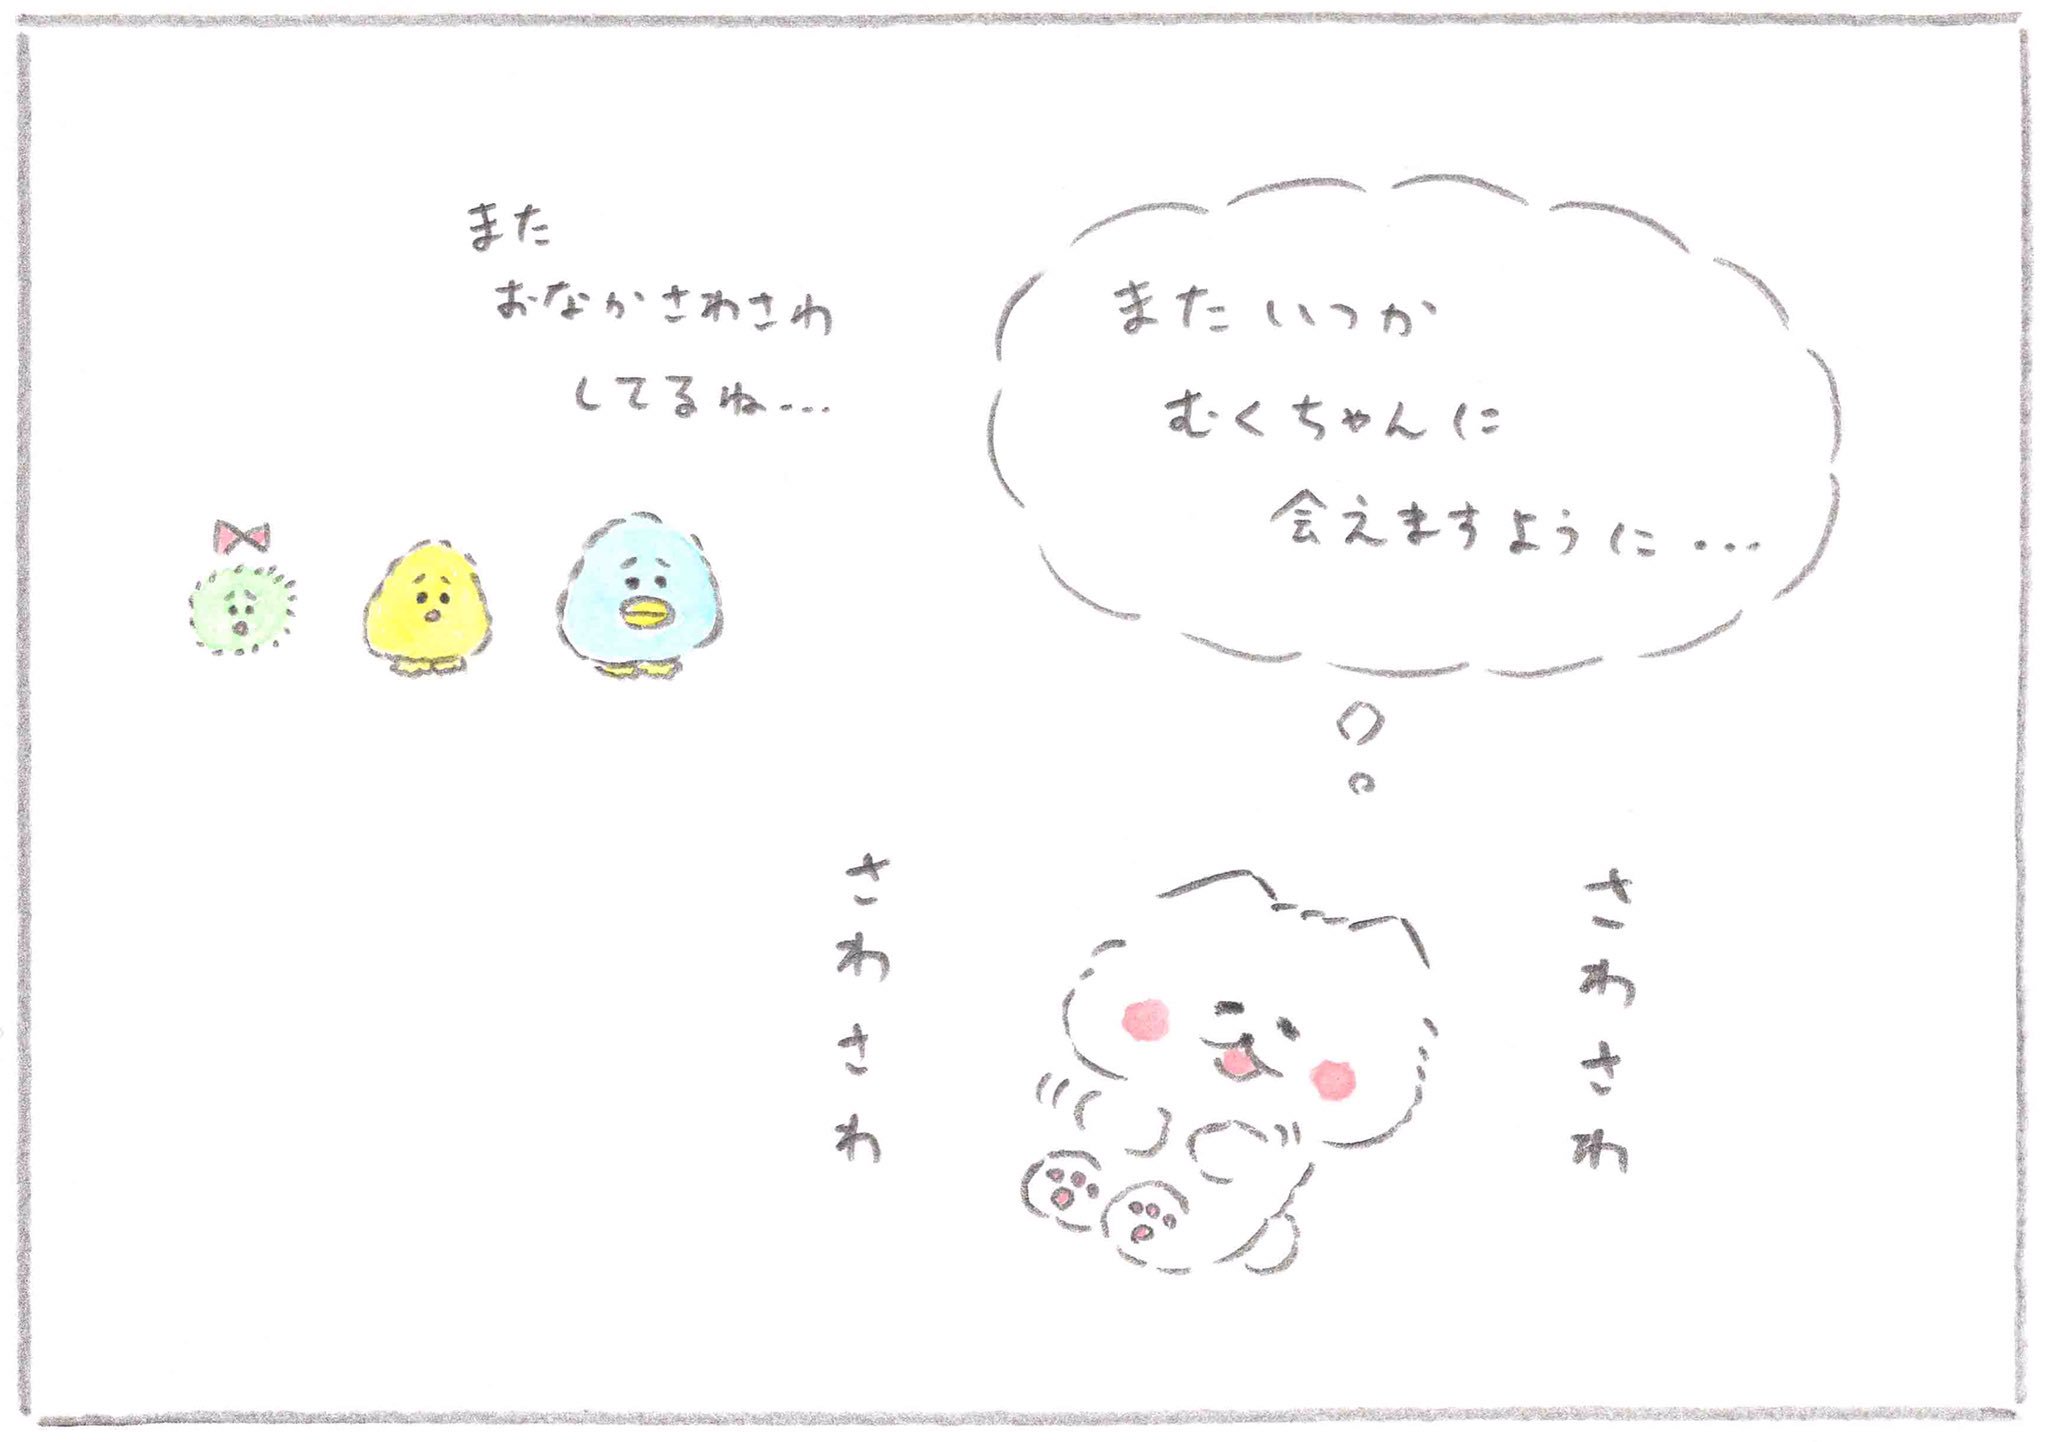 また
おなかさわさわ
してるね...
またいつか
むくちゃんに
会えますように...
さわさわ
さわさわ